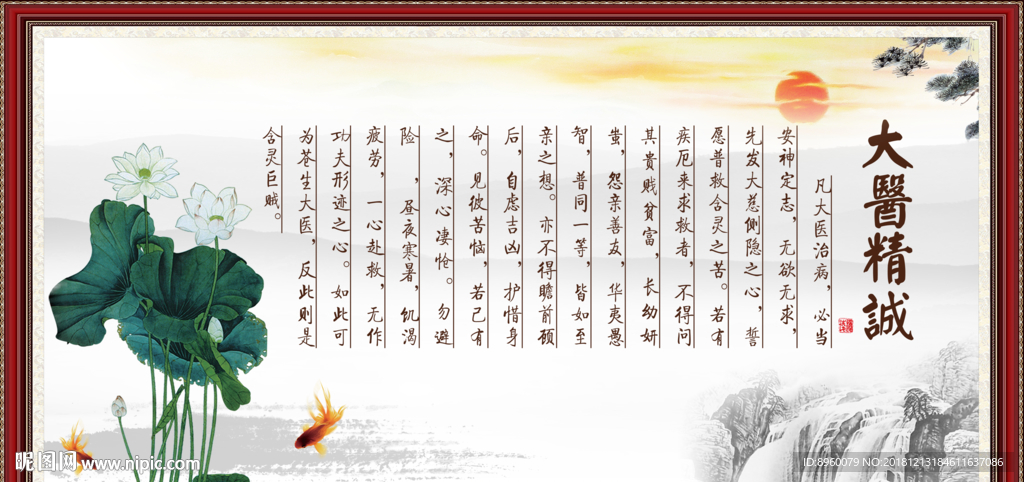 大醫精誠
凡大医治病，必当
安神定志，无欲无求，
先发大慈恻隐之心，誓
愿普救含灵之苦。若有
疾厄来求救者，不得问
其贵贱贫富，长幼妍
蚩，怨亲善友，华夷愚
智，普同一等，皆如至
亲之想。亦不得瞻前顾
后，自虑吉凶，护惜身
命。见彼苦恼，若己有
之，深心凄怆。勿避
险，昼夜寒暑，饥渴
疲劳，一心赴救，无作
功夫形迹之心。如此可
为苍生大医，反此则是
含灵巨贼。
昵图网 www.nipic.com
ID:8960079 NO:20181213184611637086